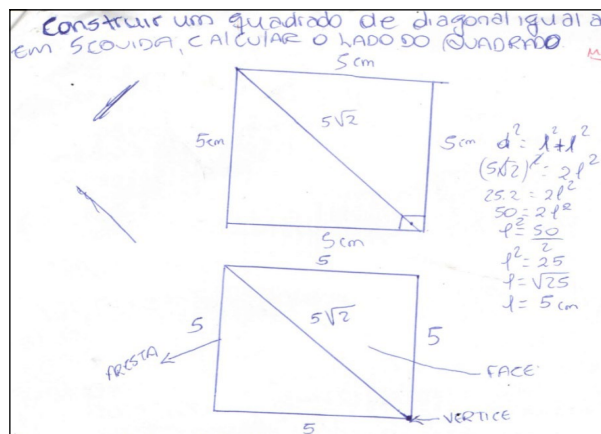 Construir um quadrado de diagonal igual a
EM SCOVIDA, CALCULAR O LADO DO QUADRADO
5cm
5√2
5cm
5cm
5cm
d² = l² + l²
(5√2)² = 2l²
25.2 = 2l²
50 = 2l²
l² = 50/2
l² = 25
l = √25
l = 5 cm
5
5√2
5
5
ARESTA
FACE
VERTICE
5